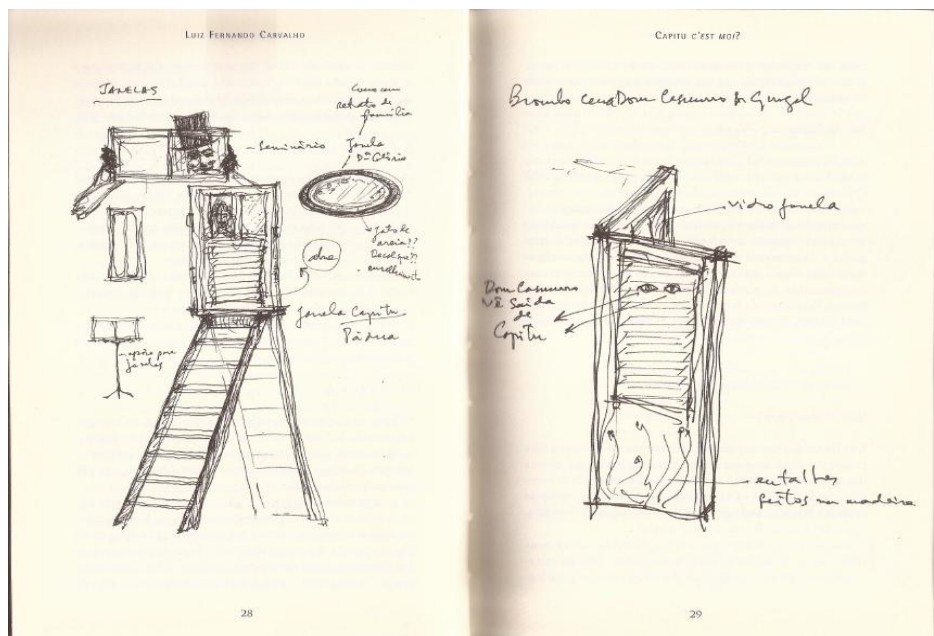 LUIZ FERNANDO CARVALHO
JANELAS
Como um
retrato de
família
- Seminário
Janela
Dª Glória
Jato de
areia??
Decalque??
envelhecimento
abre
Janela Capitu
Pádua
apoio para
janelas
28
CAPITU C'EST MOI?
Biombo cena Dom Casmurro & Gurgel
vidro janela
Dom Casmurro
vê saída
de
Capitu
entalhes
feitos na madeira
29